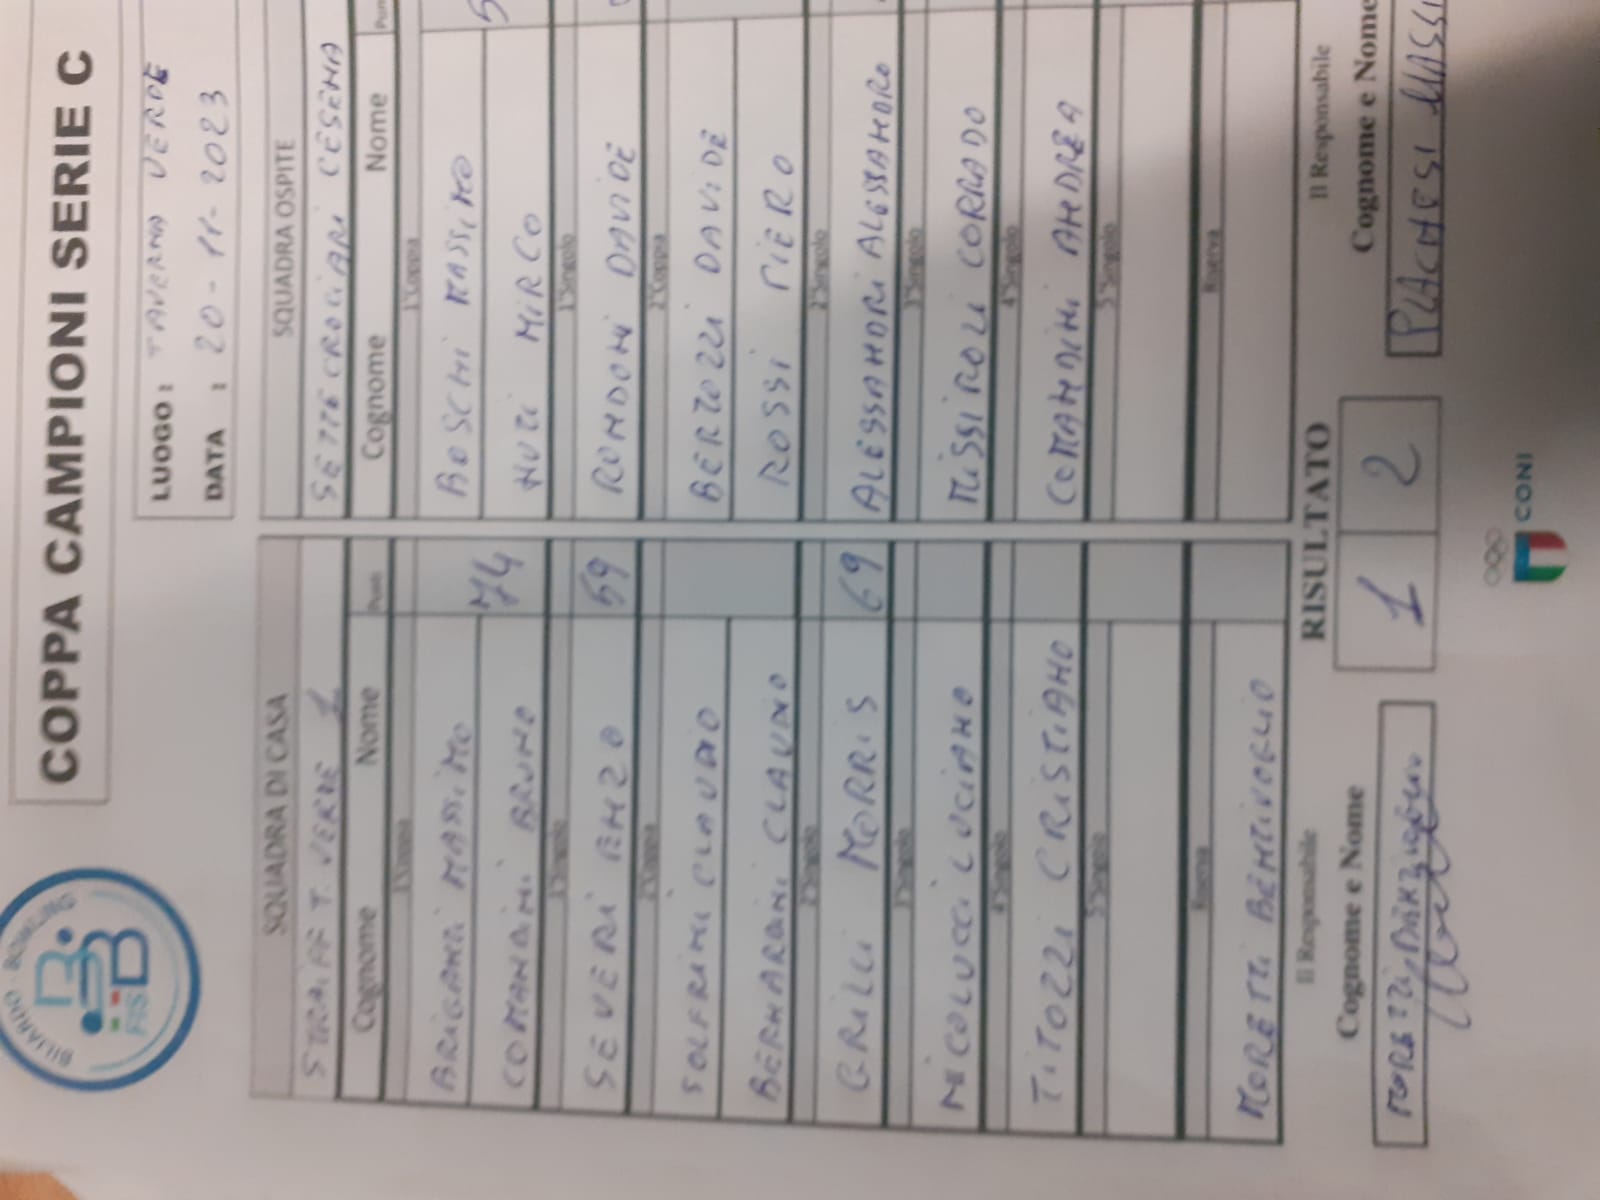 COPPA CAMPIONI SERIE C
BILIARDO BOWLING
FISBB
LUOGO: TAVERNA VERDE
DATA : 20-11-2023
SQUADRA DI CASA
STRAIFF T. VERDE 1
Cognome Nome Punti
1°Coppia
BRIGANTI MASSIMO
COMANDINI BRUNO 74
1°Singolo
SEVERI ENZO 59
2°Coppia
SOLFRINI CLAUDIO
BERNARDINI CLAUDIO
2°Singolo
GRILLI MORRIS 69
3°Singolo
NICOLUCCI LUCIANO
4°Singolo
TITOZZI CRISTIANO
5°Singolo
Riserva
MORETTI BENTIVOGLIO
SQUADRA OSPITE
SETTECROCIARI CESENA
Cognome Nome
1°Coppia
BOSCHI MASSIMO
NUTI MIRCO
1°Singolo
RONDONI DAVIDE
2°Coppia
BERTOZZI DAVIDE
ROSSI PIERO
2°Singolo
ALESSANDRI ALESSANDRO
3°Singolo
MISSIROLI CORRADO
4°Singolo
COMANDINI ANDREA
5°Singolo
Riserva
Il Responsabile
Cognome e Nome
RISULTATO
1 2
Il Responsabile
Cognome e Nome
CONI